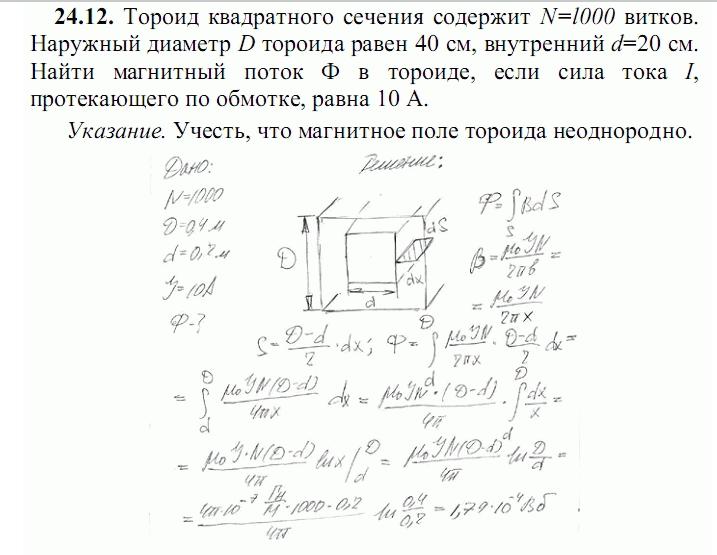 24.12. Тороид квадратного сечения содержит N=1000 витков.
Наружный диаметр D тороида равен 40 см, внутренний d=20 см.
Найти магнитный поток Ф в тороиде, если сила тока I,
протекающего по обмотке, равна 10 А.
Указание. Учесть, что магнитное поле тороида неоднородно.
Дано:
N=1000
D=0,4 м
d=0,2 м
J=10A
Ф-?
Решение:
D
d
dS
dx
Ф=∫_S BdS
B=μ₀JN/2πb=
=μ₀JN/2πx
S=(D-d)/2·dx; Ф=∫_d^D μ₀JN/2πx·(D-d)/2 dx=
=∫_d^D μ₀JN(D-d)/4πx dx=μ₀JN·(D-d)/4π·∫_d^D dx/x=
=μ₀J·N(D-d)/4π lnx|_d^D=μ₀JN(D-d)/4π ln D/d=
=4π·10⁻⁷ Гн/м·1000·0,2/4π ln 0,4/0,2=1,79·10⁻⁴Вб